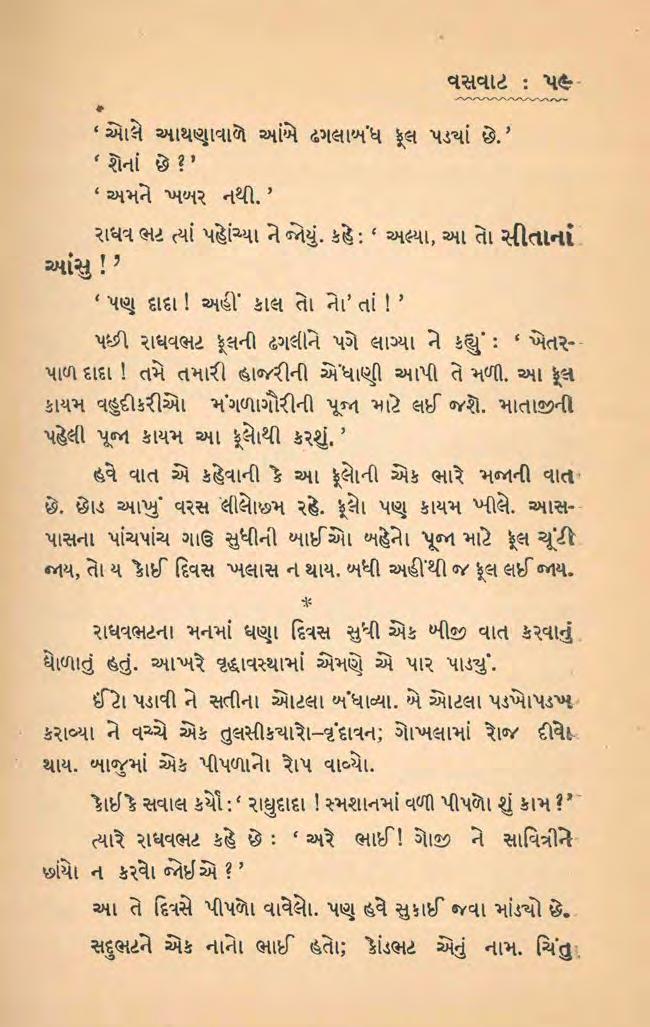 વસવાટ : ૫૯
‘ ઓલે આથણાવાળે આંબે ઢગલાબંધ ફૂલ પડ્યાં છે.’
‘ શેનાં છે ?’
‘ અમને ખબર નથી. ’
રાઘવ ભટ ત્યાં પહોંચ્યા ને જોયું. કહે : ‘ અલ્યા, આ તો સીતાનાં
આંસુ ! ’
‘ પણ દાદા ! અહીં કાલ તો નો’ તાં ! ’
પછી રાઘવભટ ફૂલની ઢગલીને પગે લાગ્યા ને કહ્યું : ‘ ખેતર-
પાળ દાદા ! તમે તમારી હાજરીની એંધાણી આપી તે મળી. આ ફૂલ
કાયમ વહુદીકરીઓ મંગળાગૌરીની પૂજા માટે લઈ જશે. માતાજીની
પહેલી પૂજા કાયમ આ ફૂલોથી કરશું. ’
હવે વાત એ કહેવાની કે આ ફૂલોની એક ભારે મજાની વાત
છે. છોડ આખું વરસ લીલોછમ રહે. ફૂલો પણ કાયમ ખીલે. આસ-
પાસના પાંચપાંચ ગાઉ સુધીની બાઈઓ બહેનો પૂજા માટે ફૂલ ચૂંટી
જાય, તો ય કોઈ દિવસ ખલાસ ન થાય. બધી અહીંથી જ ફૂલ લઈ જાય.
*
રાઘવભટના મનમાં ઘણા દિવસ સુધી એક બીજી વાત કરવાનું
ઘોળાતું હતું. આખરે વૃદ્ધાવસ્થામાં એમણે એ પાર પાડ્યું.
ઈંટો પડાવી ને સતીના ઓટલા બંધાવ્યા. બે ઓટલા પડખોપડખ
કરાવ્યા ને વચ્ચે એક તુલસીકયારો–વૃંદાવન; ગોખલામાં રોજ દીવો
થાય. બાજુમાં એક પીપળાનો રોપ વાવ્યો.
કોઈકે સવાલ કર્યો : ‘ રાઘુદાદા ! સ્મશાનમાં વળી પીપળો શું કામ ?’
ત્યારે રાઘવભટ કહે છે : ‘ અરે ભાઈ ! ગોજી ને સાવિત્રીને
છાંયો ન કરવો જોઈએ ? ’
આ તે દિવસે પીપળો વાવેલો. પણ હવે સુકાઈ જવા માંડ્યો છે.
સદુભટને એક નાનો ભાઈ હતો; કોંડભટ એનું નામ. ચિંતુ